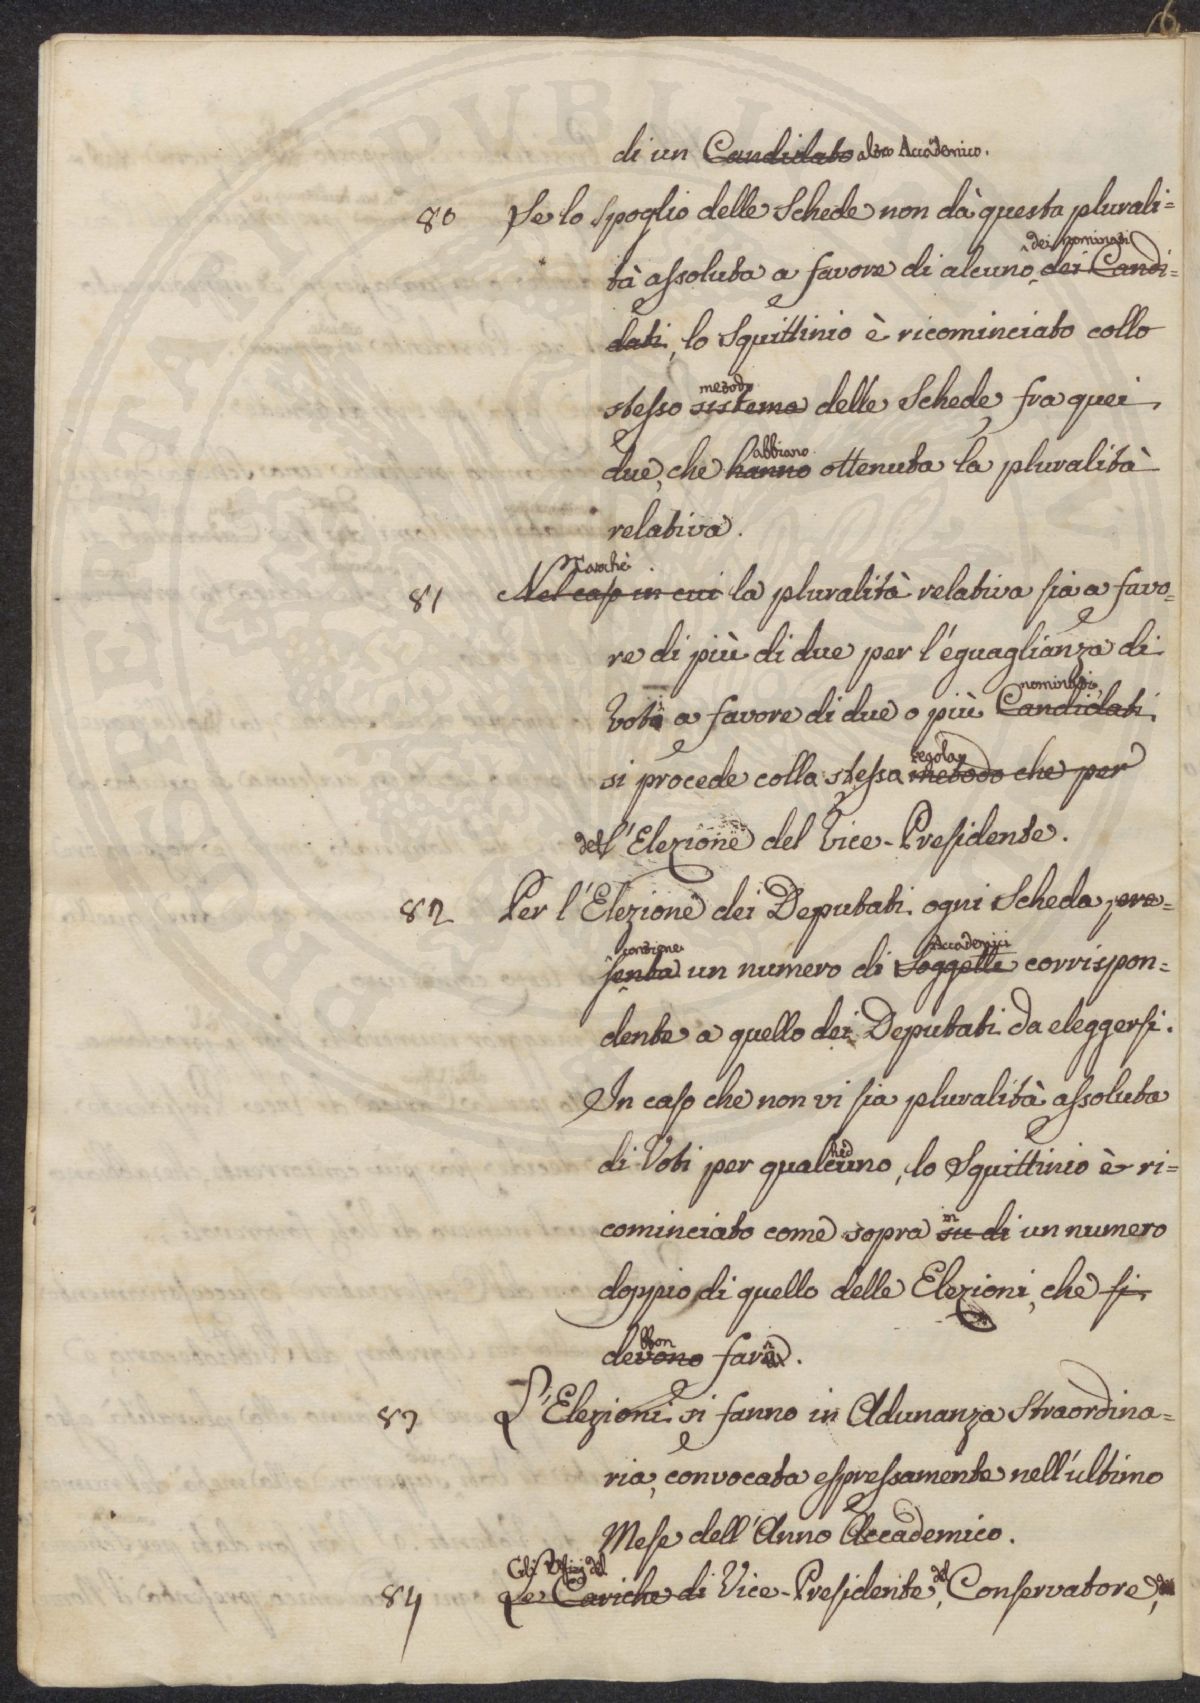 di un Candidato altro Accademico.
80 Se lo Spoglio delle Schede non dà questa plurali=
dei nominati
tà assoluta a favore di alcuno, dei Candi=
dati, lo Squittinio è ricominciato collo
metodo
stesso sistema delle Schede, fra quei
abbiano
due, che hanno ottenuta la pluralità
relativa.
81 Nel caso in cui la pluralità relativa sia a favo=
re di più di due per l'eguaglianza di
nominati,
Voti a favore di due o più Candidati
regola
si procede colla stessa metodo che per
dell'Elezione del Vice-Presidente.
82 Per l'Elezione dei Deputati ogni Scheda, pre=
contiene Accademici
senta un numero di Soggetti corrispon=
dente a quello dei Deputati da eleggersi.
In caso che non vi sia pluralità assoluta
di Voti per qualcuno, lo Squittinio è ri=
in
cominciato come sopra su di un numero
doppio di quello delle Elezioni, che si
bbon
devono fare.
83 L'Elezioni si fanno in Adunanza Straordina=
ria, convocata espressamente nell'ultimo
Mese dell'Anno Accademico.
Gli Ufizi del
84 Le Cariche di Vice-Presidente, del Conservatore,